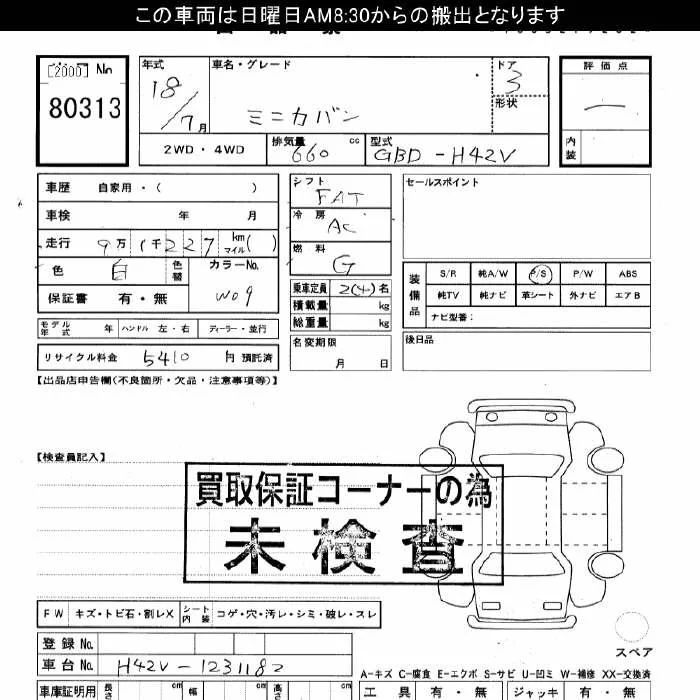 この車両は日曜日AM8:30からの搬出となります
[2000] No
80313
年式 18/7月
車名・グレード ミニカバン
ドア 3
形状
評価点 ー
内装
2WD・4WD 排気量 660 cc 型式 GBD-H42V
車歴 自家用・( )
車検 年 月
走行 9万1千227 km マイル ( )
色 白 色替 カラーNo. W09
保証書 有・無
モデル年式 年 ハンドル 左・右 ディーラー・並行
リサイクル料金 5410 円 預託済
シフト FAT
冷房 AC
燃料 G
乗車定員 2(4)名
積載量 kg
総重量 kg
名変期限
月 日
セールスポイント
装備品
S/R 純A/W P/S P/W ABS
純TV 純ナビ 革シート 外ナビ エアB
ナビ型番:
後日品
【出品店申告欄(不良箇所・欠品・注意事項等)】
【検査員記入】
買取保証コーナーの為
未検査
FW キズ・トビ石・割レX シート内装 コゲ・穴・汚レ・シミ・破レ・スレ
スペア
登録No.
車台No. H42V-1231182
A-キズ C-腐食 E-エクボ S-サビ U-凹ミ W-補修 XX-交換済
車庫証明用 長さ cm 幅 cm 高さ cm
工具 有・無 ジャッキ 有・無